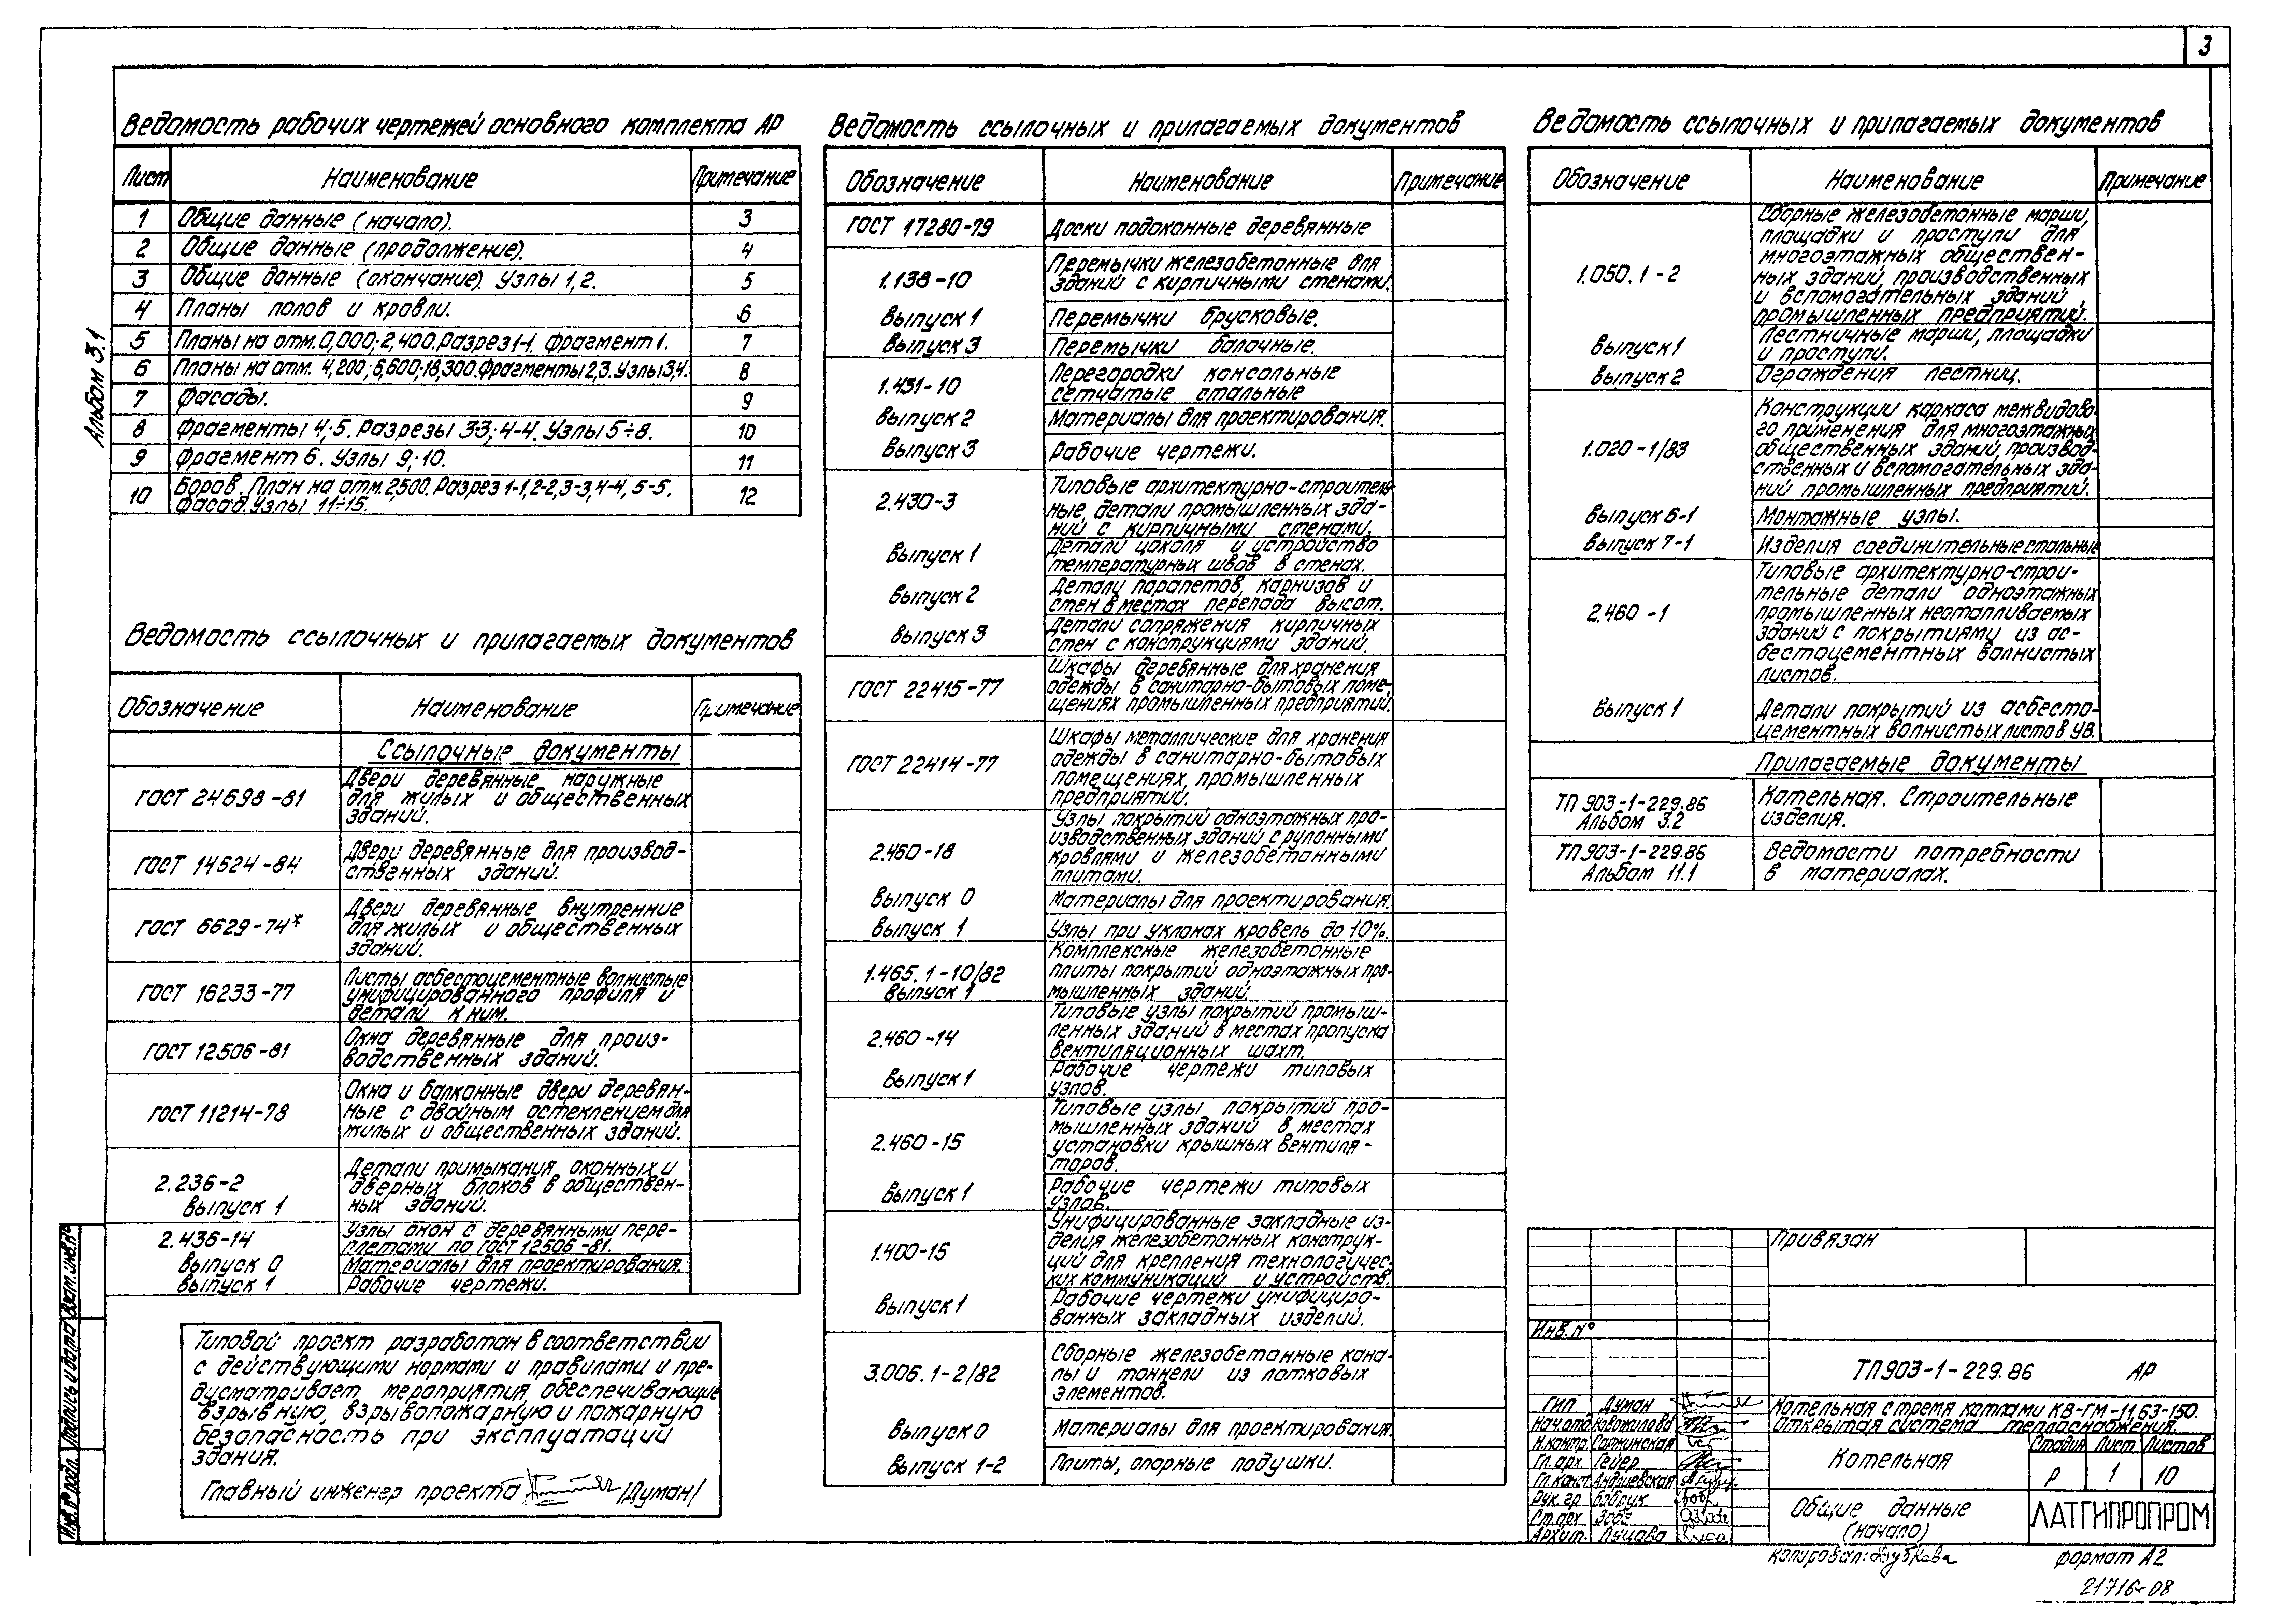 3
Альбом 3.1
Ведомость рабочих чертежей основного комплекта АР
Лист Наименование Примечание
1 Общие данные (начало). 3
2 Общие данные (продолжение). 4
3 Общие данные (окончание). Узлы 1,2. 5
4 Планы полов и кровли. 6
5 Планы на отм. 0,000; 2,400. Разрез 1-1. Фрагмент 1. 7
6 Планы на отм. 4,200; 6,600; 18,300. Фрагменты 2,3. Узлы 3,4. 8
7 Фасады. 9
8 Фрагменты 4; 5. Разрезы 3-3; 4-4. Узлы 5÷8. 10
9 Фрагмент 6. Узлы 9; 10. 11
10 Боров. План на отм. 2,500. Разрез 1-1, 2-2, 3-3, 4-4, 5-5. 12
Фасад. Узлы 11÷15.
Ведомость ссылочных и прилагаемых документов
Обозначение Наименование Примечание
Ссылочные документы
ГОСТ 24698-81 Двери деревянные наружные
для жилых и общественных
зданий.
ГОСТ 14624-84 Двери деревянные для производ-
ственных зданий.
ГОСТ 6629-74* Двери деревянные внутренние
для жилых и общественных
зданий.
ГОСТ 16233-77 Листы асбестоцементные волнистые
унифицированного профиля и
детали к ним.
ГОСТ 12506-81 Окна деревянные для произ-
водственных зданий.
ГОСТ 11214-78 Окна и балконные двери деревян-
ные с двойным остеклением для
жилых и общественных зданий.
2.236-2 Детали примыкания оконных и
дверных блоков в обществен-
выпуск 1 ных зданий.
2.436-14 Узлы окон с деревянными пере-
плетами по ГОСТ 12506-81.
выпуск 0 Материалы для проектирования.
выпуск 1 Рабочие чертежи.
Типовой проект разработан в соответствии
с действующими нормами и правилами и пре-
дусматривает мероприятия, обеспечивающие
взрывную, взрывопожарную и пожарную
безопасность при эксплуатации
здания.
Главный инженер проекта /Думан/
Ведомость ссылочных и прилагаемых документов
Обозначение Наименование Примечание
ГОСТ 17280-79 Доски подоконные деревянные
1.138-10 Перемычки железобетонные для
зданий с кирпичными стенами.
выпуск 1 Перемычки брусковые.
выпуск 3 Перемычки балочные.
1.431-10 Перегородки консольные
сетчатые стальные
выпуск 2 Материалы для проектирования.
выпуск 3 Рабочие чертежи.
2.430-3 Типовые архитектурно-строитель-
ные детали промышленных зда-
ний с кирпичными стенами.
выпуск 1 Детали цоколя и устройство
температурных швов в стенах.
выпуск 2 Детали парапетов, карнизов и
стен в местах перепада высот.
выпуск 3 Детали сопряжения кирпичных
стен с конструкциями зданий.
ГОСТ 22415-77 Шкафы деревянные для хранения
одежды в санитарно-бытовых поме-
щениях промышленных предприятий.
ГОСТ 22414-77 Шкафы металлические для хранения
одежды в санитарно-бытовых
помещениях, промышленных
предприятий.
2.460-18 Узлы покрытий одноэтажных про-
изводственных зданий с рулонными
кровлями и железобетонными
плитами.
выпуск 0 Материалы для проектирования.
выпуск 1 Узлы при уклонах кровель до 10%.
1.465.1-10/82 Комплексные железобетонные
плиты покрытий одноэтажных про-
выпуск 1 мышленных зданий.
2.460-14 Типовые узлы покрытий промыш-
ленных зданий в местах пропуска
вентиляционных шахт.
выпуск 1 Рабочие чертежи типовых
узлов.
2.460-15 Типовые узлы покрытий про-
мышленных зданий в местах
установки крышных вентиля-
торов.
выпуск 1 Рабочие чертежи типовых
узлов.
1.400-15 Унифицированные закладные из-
делия железобетонных конструк-
ций для крепления технологичес-
ких коммуникаций и устройств.
выпуск 1 Рабочие чертежи унифициро-
ванных закладных изделий.
3.006.1-2/82 Сборные железобетонные кана-
лы и тоннели из лотковых
элементов.
выпуск 0 Материалы для проектирования
выпуск 1-2 Плиты, опорные подушки.
Ведомость ссылочных и прилагаемых документов
Обозначение Наименование Примечание
1.050.1-2 Сборные железобетонные марши,
площадки и проступи для
многоэтажных обществен-
ных зданий, производственных
и вспомогательных зданий,
промышленных предприятий.
выпуск 1 Лестничные марши, площадки
и проступи.
выпуск 2 Ограждения лестниц.
1.020-1/83 Конструкции каркаса межвидово-
го применения для многоэтажных
общественных зданий, производ-
ственных и вспомогательных зда-
ний промышленных предприятий.
выпуск 6-1 Монтажные узлы.
выпуск 7-1 Изделия соединительные стальные
2.460-1 Типовые архитектурно-строи-
тельные детали одноэтажных
промышленных неотапливаемых
зданий с покрытиями из ас-
бестоцементных волнистых
листов.
выпуск 1 Детали покрытий из асбесто-
цементных волнистых листов УВ.
Прилагаемые документы
ТП 903-1-229.86 Котельная. Строительные
Альбом 3.2 изделия.
ТП 903-1-229.86 Ведомости потребности
Альбом 11.1 в материалах.
Привязан
Инв. №
ТП 903-1-229.86 АР
ГИП Думан
Нач.отд. Новожилова
Н.контр. Соржинская
Гл.арх. Гейер
Гл.конст. Андриевская
Рук.гр. Бобрук
Ст.арх. Зобе
Архит. Луцава
Котельная с тремя котлами КВ-ГМ-11,63-150.
Открытая система теплоснабжения.
Котельная
Стадия Лист Листов
Р 1 10
Общие данные
(начало)
ЛАТГИПРОПРОМ
копировал: Дубкова
формат А2
21716-08
Взам. инв. №
Подпись и дата
Инв. № подл.